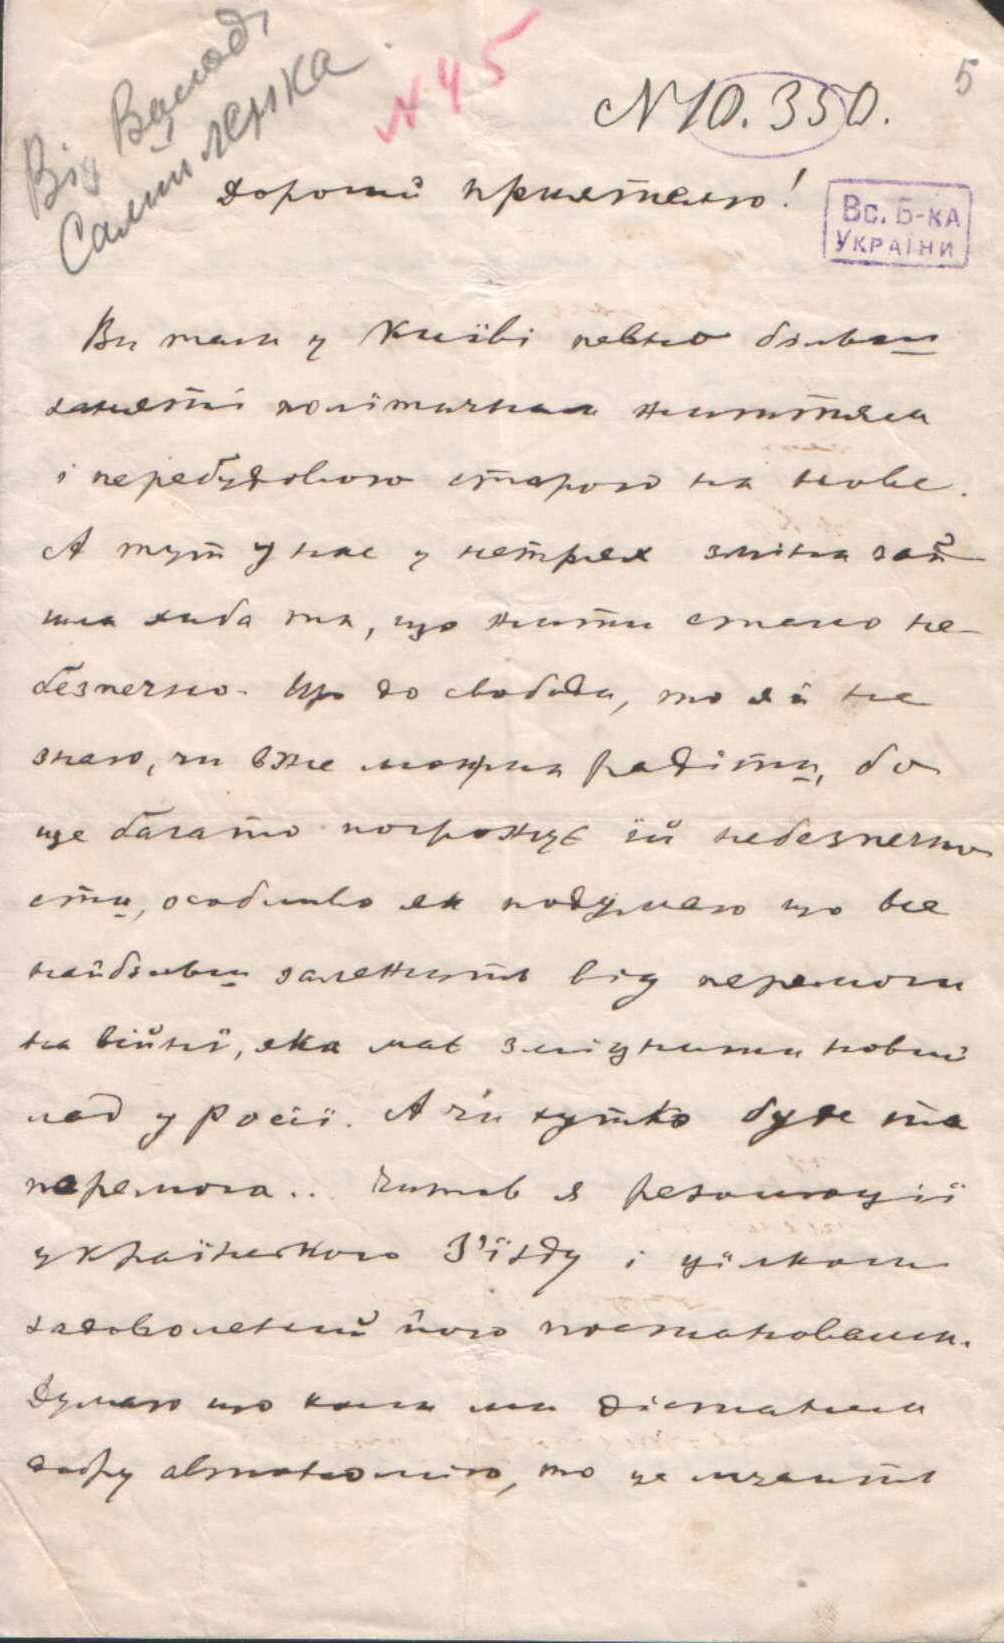 Від Волод.
Самійленка
N 45
N 10.350.
5
Дорогий приятелю!
Вс. Б-ка
України
Ви там у Київі певно більш
заняті політичним життям
і перебудовою старого на нове.
А тут у нас у нетрях зміна зай
шла хиба та, що жити стало не-
безпечно. Що до свободи, то я й не
знаю, чи вже можна радіти, бо
ще багато погрожує їй небезпечно
сти, особливо як подумаю що все
найбільш залежить від перемоги
на війні, яка має зміцнити новий
лад у Росії. А чи хутко буде та
перемога.. Читав я резолюції
українського З'їзду і цїлком
задоволений його постановами.
Думаю що коли ми дістанем
добру автономію, то це